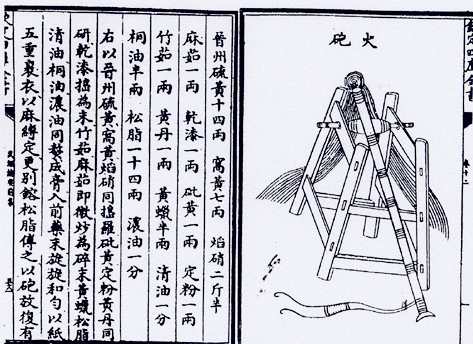 火砲
晉州硫黃十四兩 窩黃七兩 焰硝二斤半
麻茹一兩 乾漆一兩 砒黃一兩 定粉一兩
竹茹一兩 黃丹一兩 黃蠟半兩 清油一分
桐油半兩 松脂一十四兩 濃油一分
右以晉州硫黃窩黃焰硝同擣羅砒黃定粉黃丹同
研乾漆擣為末竹茹麻茹即微炒為碎末黃蠟松脂
清油桐油濃油同熬成膏入前藥末旋旋和勻以紙
五重裹衣以麻縛定更別鎔松脂傅之以砲放復有